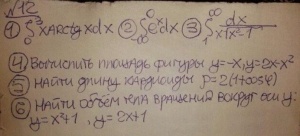 №12
1) ∫₀³ x arctg x dx 2) ∫₋∞⁰ eˣdx 3) ∫₁^∞ dx/(x√(x²-1))
4) Вычислить площадь фигуры y=-x, y=2x-x²
5) Найти длину кардиоиды ρ=2(1+cosφ)
6) Найти объём тела вращения вокруг оси y:
y=x²+1, y=2x+1